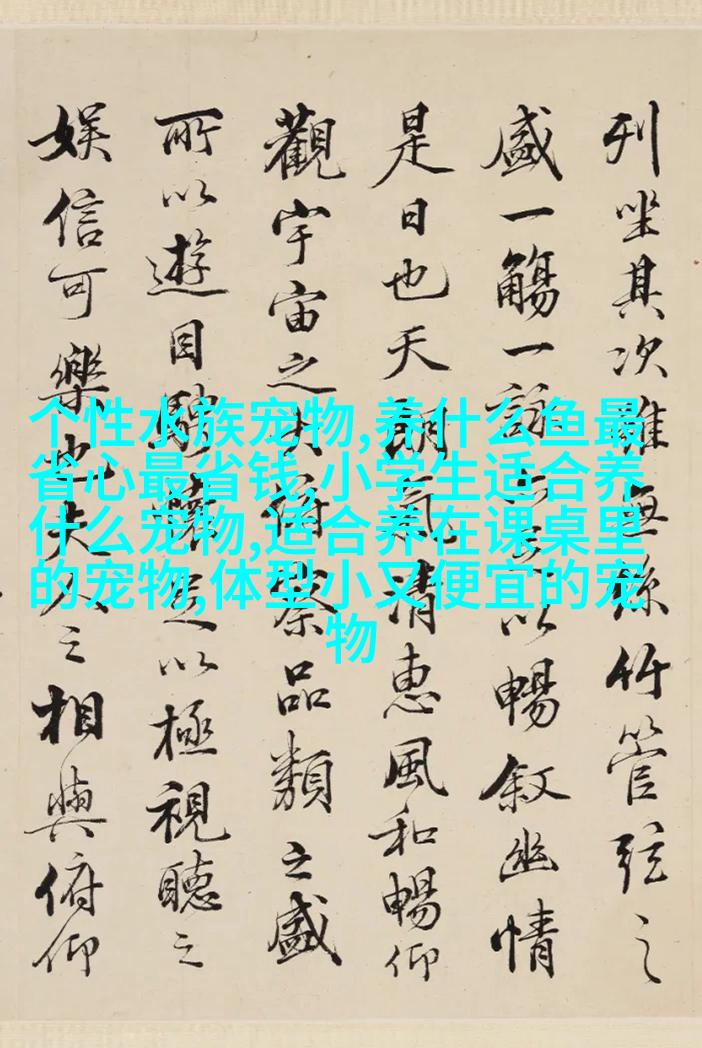 列坐其次雖無絲竹管弦之
盛一觴一詠亦足以暢叙幽情
是日也天朗氣清惠風和暢仰
觀宇宙之大俯察品類之盛
所以遊目騁懷足以極視聽之
娛信可樂也夫人之相與俯仰
个性水族宠物,养什么鱼最
省心最省钱,小学生适合养
什么宠物,适合养在课桌里
的宠物,体型小又便宜的宠
物